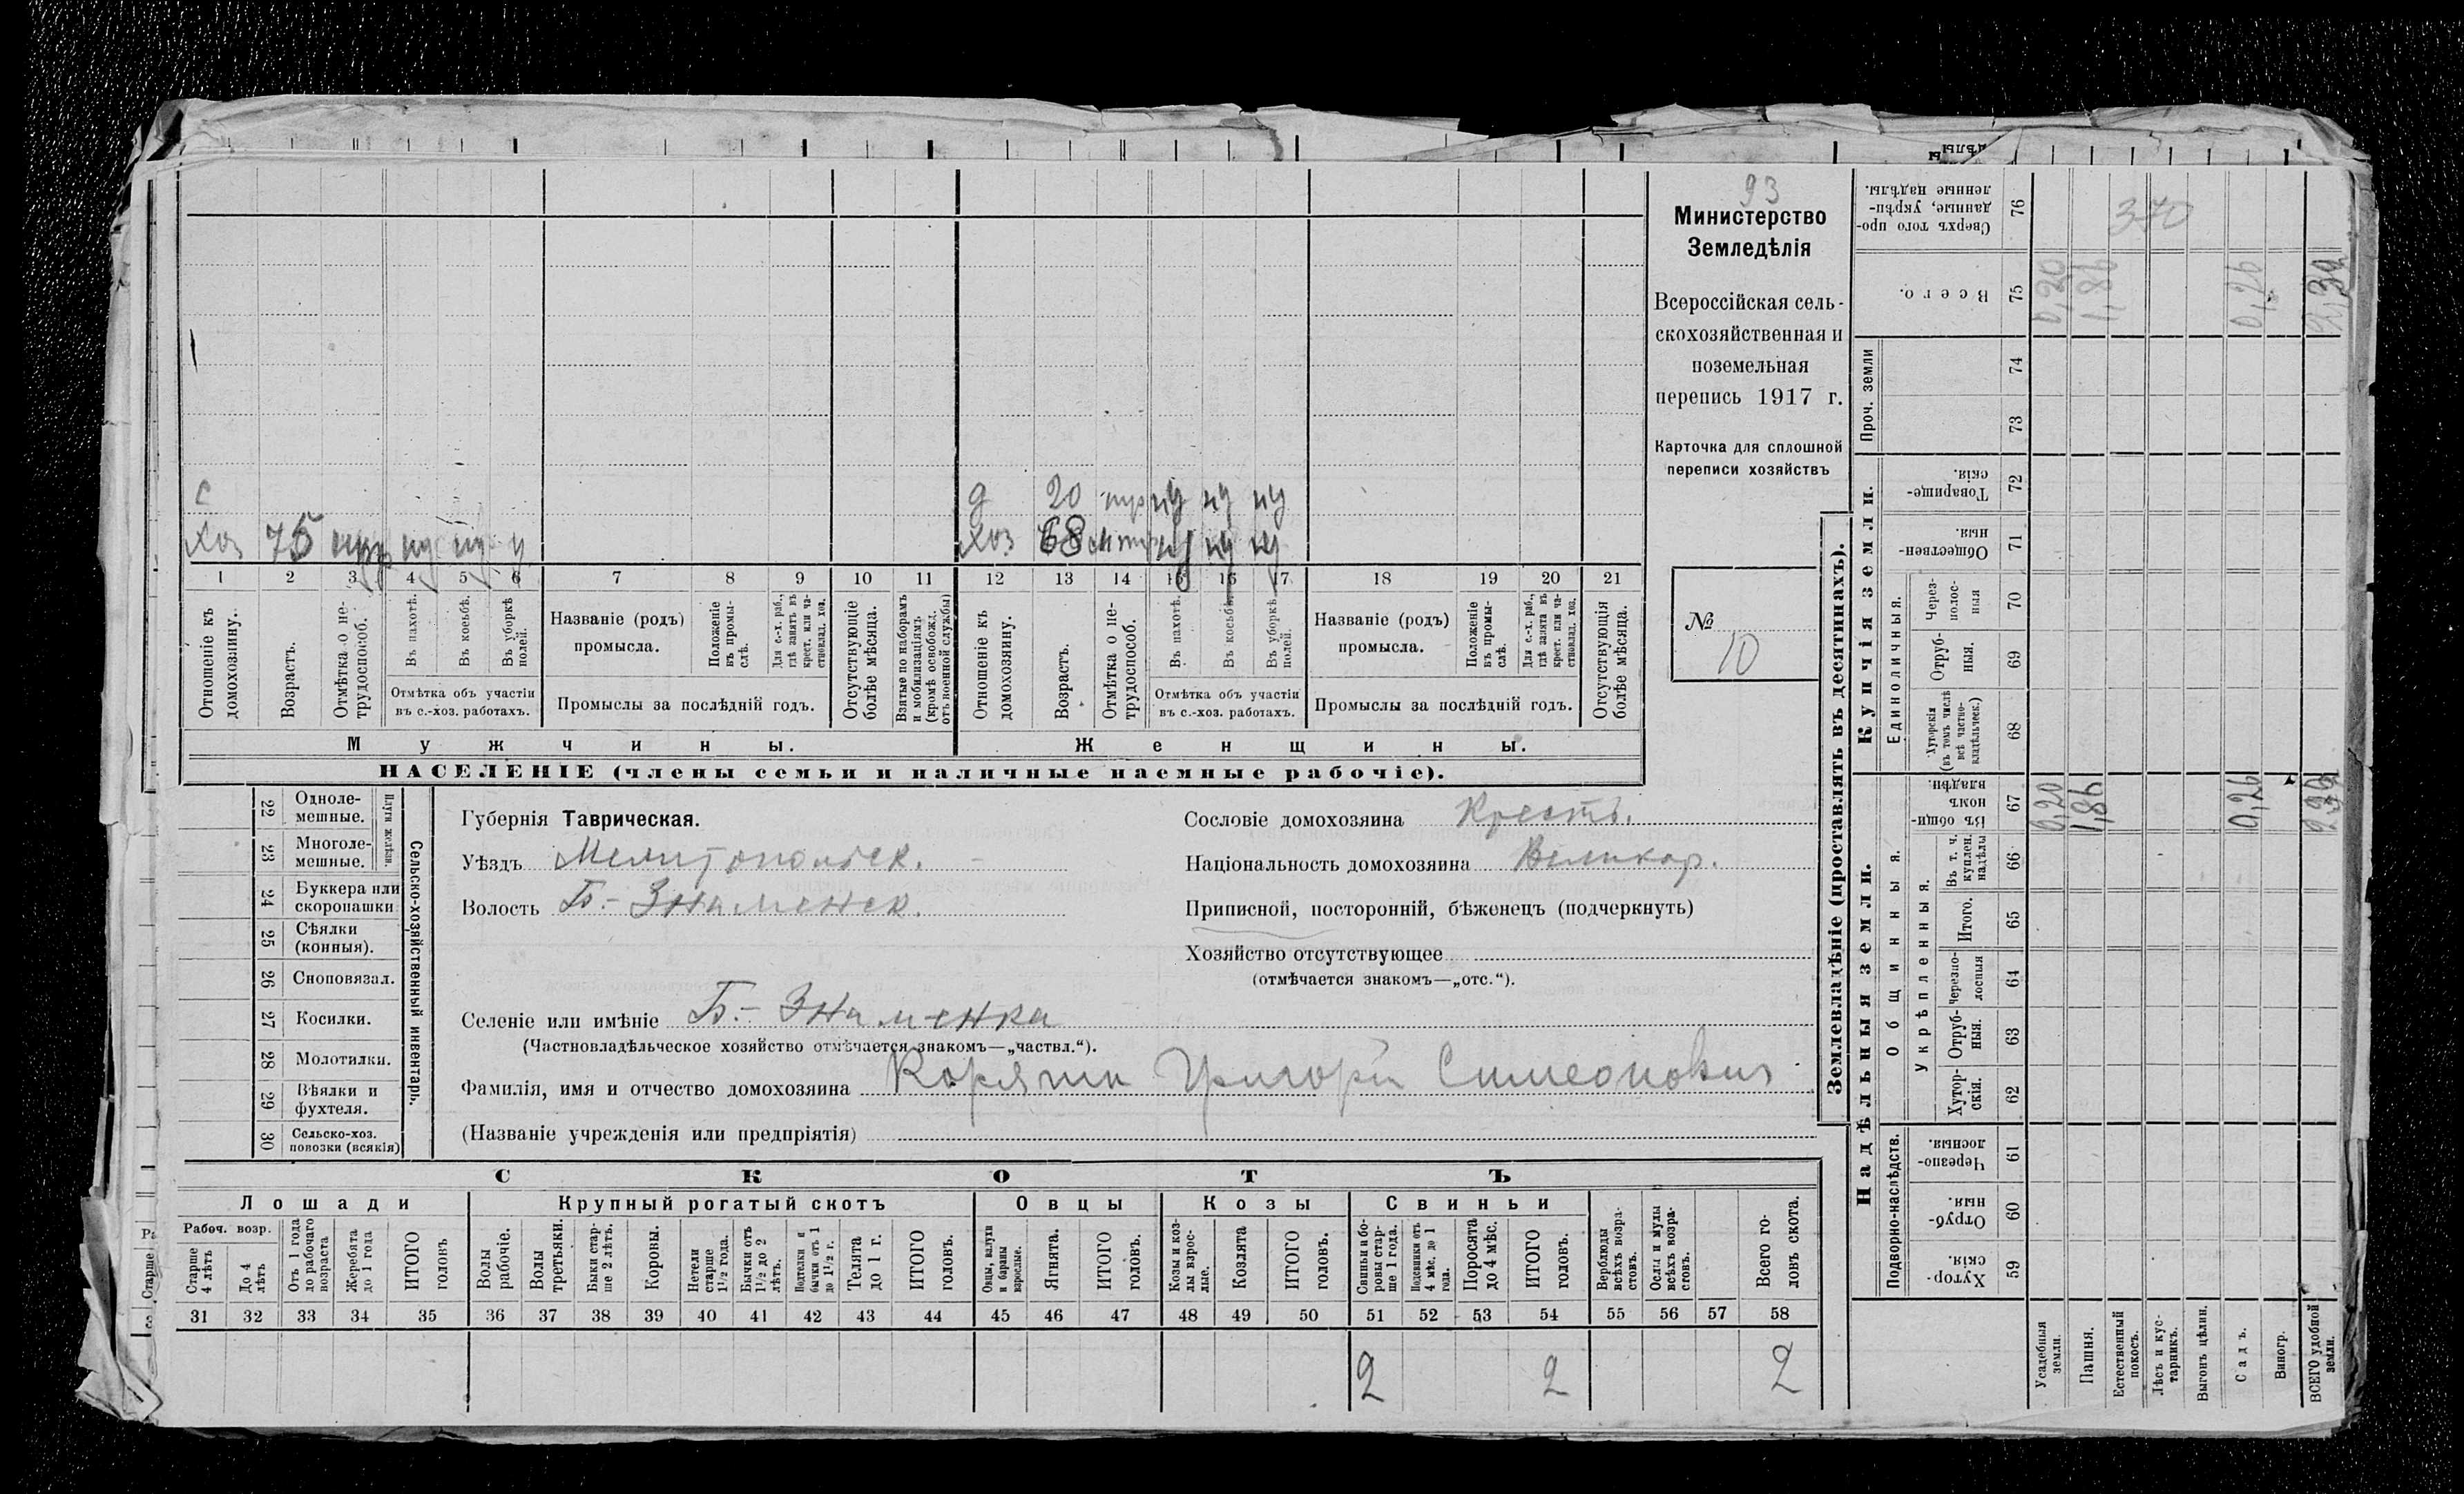 93
Министерство
Земледѣлія
Всероссійская сель-
скохозяйственная и
поземельная
перепись 1917 г.
Карточка для сплошной
переписи хозяйствъ
№
10
с
хоз 75
д 20
хоз 68
1 2 3 4 5 6 7 8 9 10 11 12 13 14 15 16 17 18 19 20 21
Отношеніе къ домохозяину.
Возрастъ.
Отмѣтка о не-трудоспособ.
Въ пахотѣ.
Въ косьбѣ.
Въ уборкѣ полей.
Отмѣтка объ участіи
въ с.-хоз. работахъ.
Названіе (родъ)
промысла.
Положеніе въ промы-слѣ.
Для с.-х. раб., гдѣ занятъ въ крест. или ча-стновлад. хоз.
Промыслы за послѣдній годъ.
Отсутствующіе болѣе мѣсяца.
Взятые по наборамъ и мобилизаціямъ (кромѣ освобожд. отъ военной службы)
Отношеніе къ домохозяину.
Возрастъ.
Отмѣтка о не-трудоспособ.
Въ пахотѣ.
Въ косьбѣ.
Въ уборкѣ полей.
Отмѣтка объ участіи
въ с.-хоз. работахъ.
Названіе (родъ)
промысла.
Положеніе въ промы-слѣ.
Для с.-х. раб., гдѣ занята въ крест. или ча-стновлад. хоз.
Промыслы за послѣдній годъ.
Отсутствующія болѣе мѣсяца.
Мужчины.
Женщины.
НАСЕЛЕНІЕ (члены семьи и наличные наемные рабочіе).
22 Одноле-мешные.
23 Многоле-мешные.
Плуги желѣзн.
24 Буккера или скоропашки
25 Сѣялки (конныя).
26 Сноповязал.
27 Косилки.
28 Молотилки.
29 Вѣялки и фухтеля.
30 Сельско-хоз. повозки (всякія)
Сельско-хозяйственный инвентарь.
Губернія Таврическая.
Уѣздъ Мелитопольск.
Волость Б.-Знаменск.
Селеніе или имѣніе Б.-Знаменка
(Частновладѣльческое хозяйство отмѣчается знакомъ—„частвл.“).
Фамилія, имя и отчество домохозяина Корягин Григорій Симеонович
(Названіе учрежденія или предпріятія)
Сословіе домохозяина Крестъ.
Національность домохозяина Великор.
Приписной, посторонній, бѣженецъ (подчеркнуть)
Хозяйство отсутствующее
(отмѣчается знакомъ—„отс.“).
СКОТЪ
Лошади
Крупный рогатый скотъ
Овцы
Козы
Свиньи
Рабоч. возр.
Старше 4 лѣтъ
До 4 лѣтъ
Отъ 1 года до рабочаго возраста
Жеребята до 1 года
ИТОГО головъ
Волы рабочіе.
Волы третьяки.
Быки стар-ше 2 лѣтъ.
Коровы.
Нетели старше 1½ года.
Бычки отъ 1½ до 2 лѣтъ.
Подтелки и бычки отъ 1 до 1½ г.
Телята до 1 г.
ИТОГО головъ.
Овцы, валухи и бараны взрослые.
Ягнята.
ИТОГО головъ.
Козы и коз-лы взрос-лые.
Козлята
ИТОГО головъ.
Свиньи и бо-ровы стар-ше 1 года.
Подсвинки отъ 4 мѣс. до 1 года.
Поросята до 4 мѣс.
ИТОГО головъ.
Верблюды всѣхъ возра-стовъ.
Ослы и мулы всѣхъ возра-стовъ.
Всего го-ловъ скота.
31 32 33 34 35 36 37 38 39 40 41 42 43 44 45 46 47 48 49 50 51 52 53 54 55 56 57 58
2 2 2
Землевладѣніе (проставлять въ десятинахъ).
Надѣльныя земли.
Купчія земли.
Проч. земли
Подворно-наслѣдств.
Общинныя.
Укрѣпленныя.
Единоличныя.
Сверхъ того про-данные, укрѣп-ленные надѣлы. 76
370
Всего. 75
0,20 1,86 0,26 2,32
74
73
Товарище-скія. 72
Обществен-ныя. 71
Через-полос-ныя 70
Отруб-ныя. 69
Хуторскія (въ томъ числѣ всѣ частно-владѣльческ.) 68
Въ общи-номъ владѣн. 67
0,20 1,86 0,26 2,32
Въ т. ч. куплен. надѣлы 66
Итого. 65
Черезпо-лосныя 64
Отруб-ныя. 63
Хутор-скія. 62
Черезпо-лосныя. 61
Отруб-ныя. 60
Хутор-скія. 59
Усадебныя земли.
Пашня.
Естественный покосъ.
Лѣсъ и кус-тарникъ.
Выгонъ цѣлин.
Садъ.
Виногр.
ВСЕГО удобной земли.